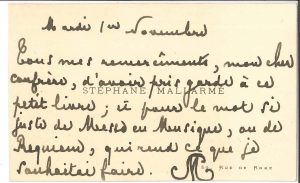 Mardi 1er Novembre
Tous mes remerciments, mon cher
confrère, d'avoir pris garde à ce
STÉPHANE MALLARMÉ
petit livre; et pour le mot si
juste de Messe en Musique, ou de
Requiem, qui rend ce que je
souhaitai faire.
RUE DE ROME